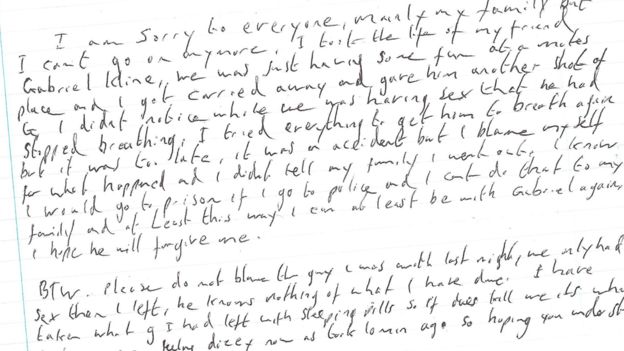 I am sorry to everyone, mainly my family but
I cant go on anymore, I took the life of my friend
Gabriel kline, we was just having some fun at a mates
place and I got carried away and gave him another shot of
G. I didnt notice while we was having sex that he had
stopped breathing, I tried everything to get him to breath again
but it was to late, it was an accident but I blame myself
for what happned and I didnt tell my family I went out. I know
I would go to prison if I go to police and I cant do that to my
family and at least this way I can at least be with Gabriel again,
I hope he will forgive me.
BTW. Please do not blame the guy I was with last night, we only had
sex then I left, he knows nothing of what I have done. I have
taken what g I had left with sleeping pills so if it does kill me its wha
feeling dizzy now as took 10 min ago so hoping you underst